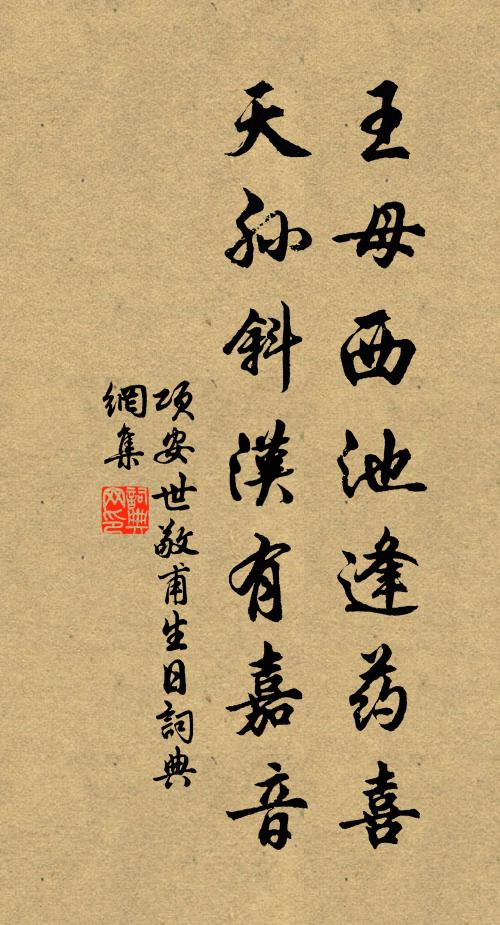 王母西池逢药喜
天孙斜漢有嘉音
项安世敬甫生日詞典
網集
詞典
网印